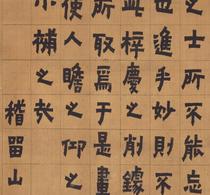 之士所不能忘
也進手妙則不
此梓慶之削鐻
所取爲于是畫
使人瞻之仰之
小補之哉
稽留山